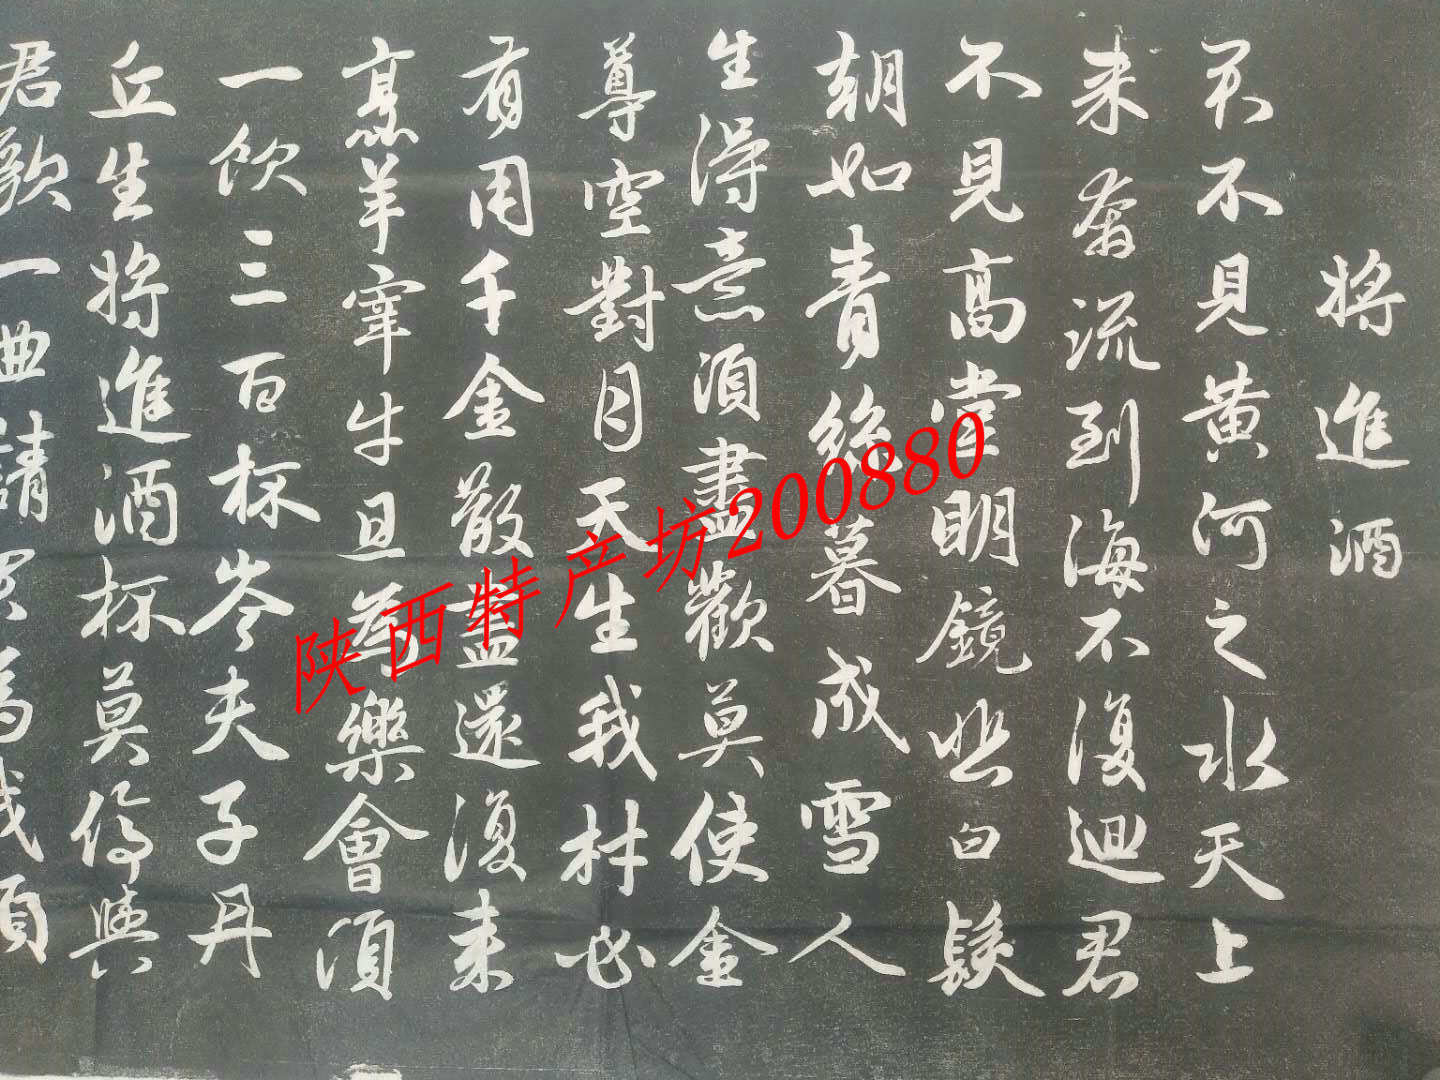 將進酒
君不見黃河之水天上
来奔流到海不復迴君
不見高堂明鏡悲白髮
朝如青絲暮成雪人
生得意須盡歡莫使金
尊空對月天生我材必
有用千金散盡還復来
烹羊宰牛且為樂會須
一飲三百杯岑夫子丹
丘生將進酒杯莫停與
君歌一曲請君為我
陕西特产坊200880